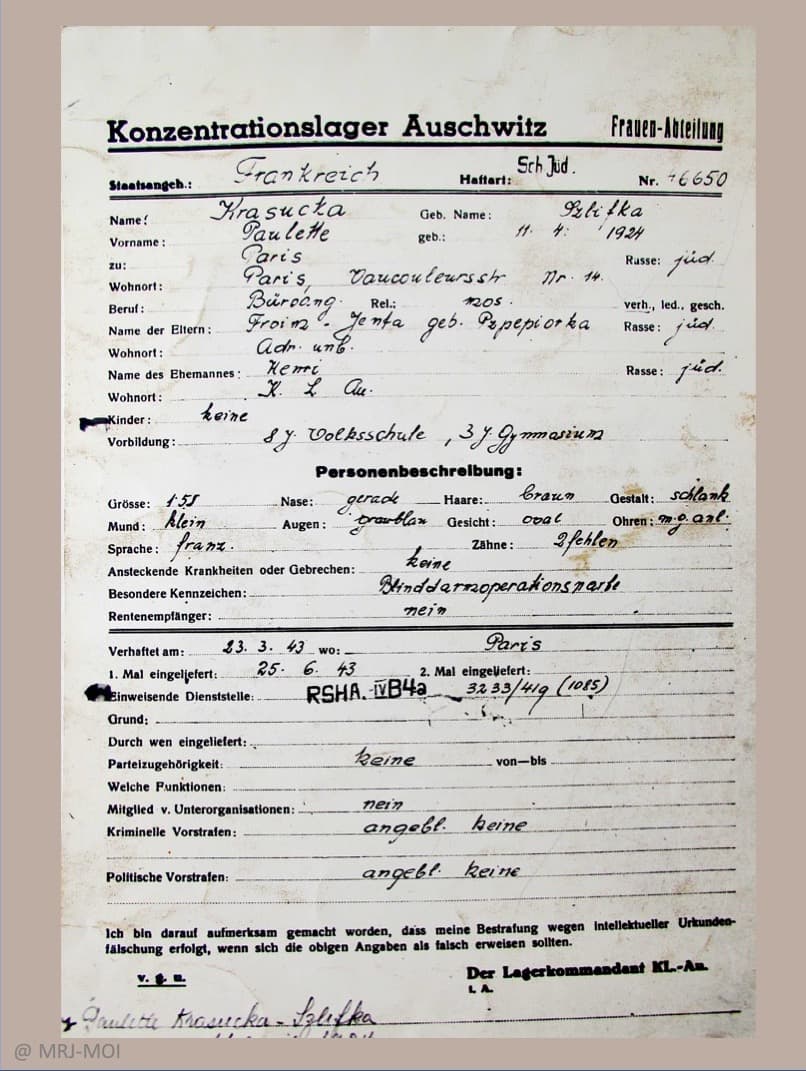 Konzentrationslager Auschwitz Frauen-Abteilung
Staatsangeh.: Frankreich Haftart: Sch Jüd. Nr. 46650
Name: Krasucka Geb. Name: Szlifka
Vorname: Paulette geb.: 11. 4. 1924
zu: Paris Rasse: jüd.
Wohnort: Paris, Vaucouleursstr Nr. 14.
Beruf: Büroang. Rel.: mos. verh., led., gesch.
Name der Eltern: Froim - Jenta geb. Rasse: jüd.
Wohnort: Adr. unb.
Name des Ehemannes: Henri Rasse: jüd.
Wohnort: K. L Au.
Kinder: keine
Vorbildung: 8 J. Volksschule, 3 J. Gymnasium
Personenbeschreibung:
Grösse: 1.58 Nase: gerade Haare: braun Gestalt: schlank
Mund: klein Augen: graublau Gesicht: oval Ohren: m.g. anl.
Sprache: franz. Zähne: 2 fehlen
Ansteckende Krankheiten oder Gebrechen: keine
Besondere Kennzeichen: Blinddarmoperationsnarbe
Rentenempfänger: nein
Verhaftet am: 23. 3. 43 wo: Paris
1. Mal eingeliefert: 25. 6. 43 2. Mal eingeliefert:
Einweisende Dienststelle: RSHA. IVB4a 3233/41g (1085)
Grund:
Durch wen eingeliefert:
Parteizugehörigkeit: keine von—bis
Welche Funktionen:
Mitglied v. Unterorganisationen: nein
Kriminelle Vorstrafen: angebl. keine
Politische Vorstrafen: angebl. keine
Ich bin darauf aufmerksam gemacht worden, dass meine Bestrafung wegen intellektueller Urkunden-
fälschung erfolgt, wenn sich die obigen Angaben als falsch erweisen sollten.
v. g. u. Der Lagerkommandant KL.-Au.
I. A.
Paulette Krasucka - Szlifka
@ MRJ-MOI